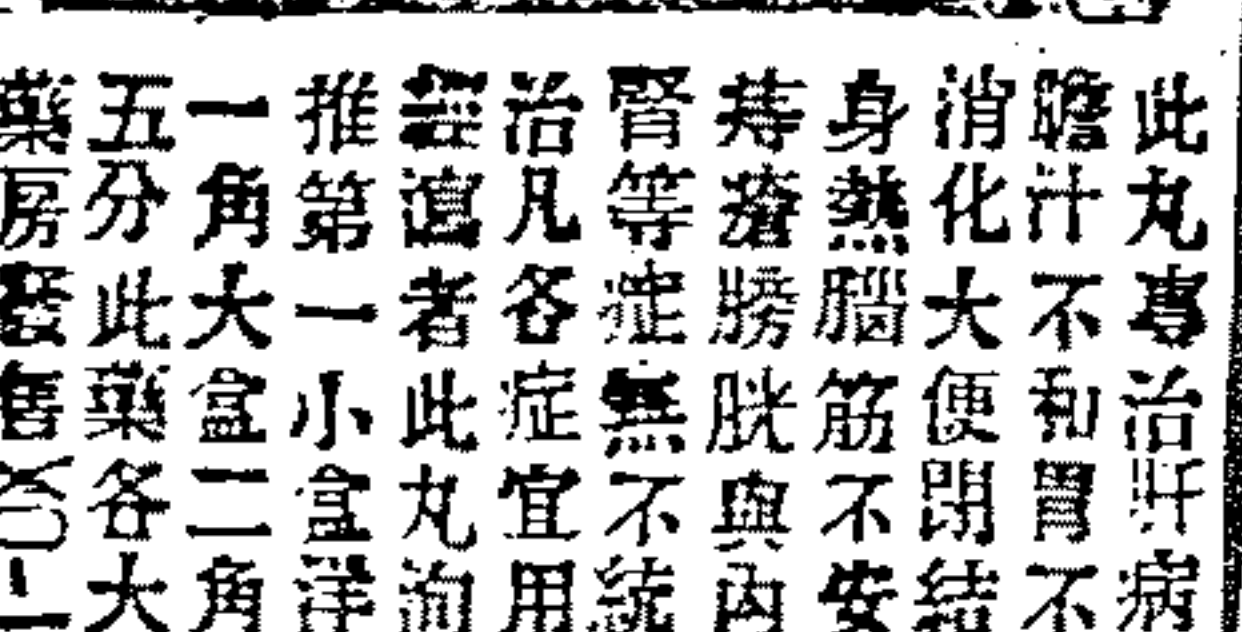 此丸專治肝病
膽汁不和胃不
消化大便閉結
身熱腦筋不安
瘡膀胱與內
腎等症無不統
治凡各症宜用
瀉者此丸洵
推第一小盒洋
一角大盒二角
五分此藥各大
藥房發售